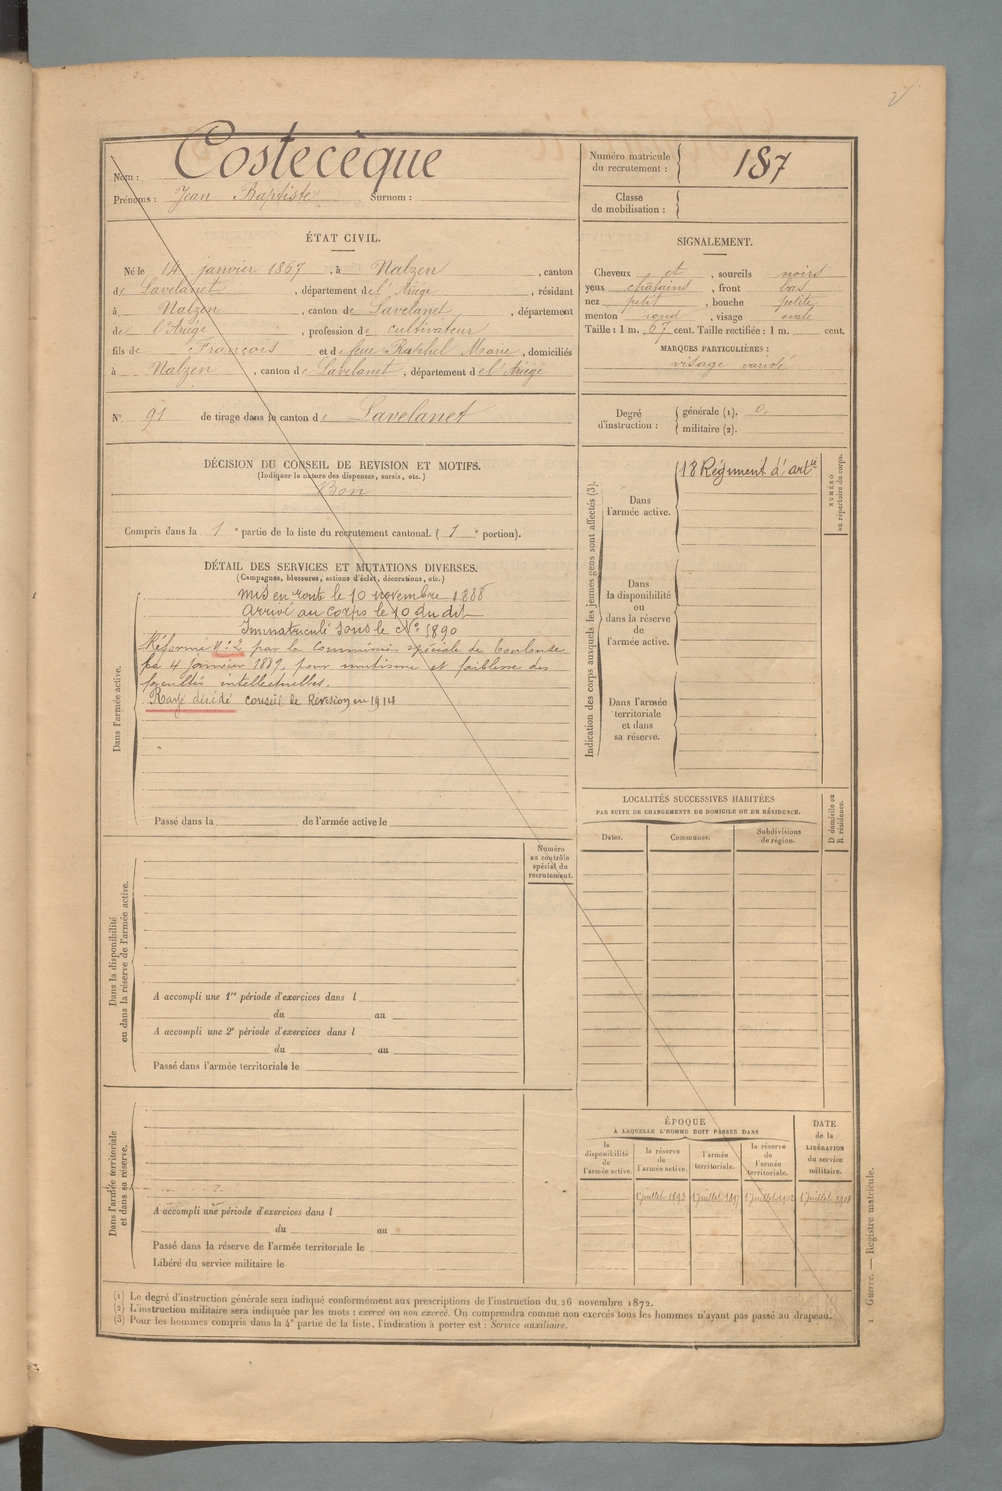 Costecèque
Nom :
Prénoms : Jean Baptiste Surnom :
Numéro matricule du recrutement : 187
Classe de mobilisation :
ÉTAT CIVIL.
Né le 14 janvier 1867, à Nalzen, canton
de Lavelanet, département de l'Ariège, résidant
à Nalzen, canton de Lavelanet, département
de l'Ariège, profession de cultivateur
fils de François et de feue Raphel Marie, domiciliés
à Nalzen, canton de Lavelanet, département de l'Ariège
N° 91 de tirage dans le canton de Lavelanet
SIGNALEMENT.
Cheveux et, sourcils noirs
yeux chatains, front bas
nez petit, bouche petite
menton rond, visage ovale
Taille : 1 m. 67 cent. Taille rectifiée : 1 m. cent.
MARQUES PARTICULIÈRES :
visage variolé
Degré d'instruction : générale (1). 0.
militaire (2).
DÉCISION DU CONSEIL DE REVISION ET MOTIFS.
(Indiquer la nature des dispenses, sursis, etc.)
Bon
Compris dans la 1e partie de la liste du recrutement cantonal. (1e portion).
DÉTAIL DES SERVICES ET MUTATIONS DIVERSES.
(Campagnes, blessures, actions d'éclat, décorations, etc.)
Dans l'armée active.
Mis en route le 10 novembre 1888
Arrivé au corps le 10 du dit
Immatriculé sous le N° 1890
Réformé N° 2 par la Commission spéciale de Toulouse
le 4 janvier 1889, pour mutisme et faiblesse des
facultés intellectuelles.
Rayé décédé Conseil de Révision en 1914
Passé dans la de l'armée active le
Indication des corps auxquels les jeunes gens sont affectés (3).
Dans l'armée active.
18 Régiment d'artie
NUMÉRO au répertoire du corps.
Dans la disponibilité ou dans la réserve de l'armée active.
Dans l'armée territoriale et dans sa réserve.
LOCALITÉS SUCCESSIVES HABITÉES
PAR SUITE DE CHANGEMENTS DE DOMICILE OU DE RÉSIDENCE.
Dates. Communes. Subdivisions de région.
D domicile ou R résidence.
Numéro au contrôle spécial du recrutement.
Dans la disponibilité ou dans la réserve de l'armée active.
A accompli une 1re période d'exercices dans l
du au
A accompli une 2e période d'exercices dans l
du au
Passé dans l'armée territoriale le
Dans l'armée territoriale et dans sa réserve.
A accompli une période d'exercices dans l
du au
Passé dans la réserve de l'armée territoriale le
Libéré du service militaire le
ÉPOQUE
À LAQUELLE L'HOMME DOIT PASSER DANS
la disponibilité de l'armée active.
la réserve de l'armée active.
l'armée territoriale.
la réserve de l'armée territoriale.
DATE de la LIBÉRATION du service militaire.
1 juillet 1893 1 juillet 1897 1 juillet 1 juillet 1908
(1) Le degré d'instruction générale sera indiqué conformément aux prescriptions de l'instruction du 26 novembre 1872.
(2) L'instruction militaire sera indiquée par les mots : exercé ou non exercé. On comprendra comme non exercés tous les hommes n'ayant pas passé au drapeau.
(3) Pour les hommes compris dans la 4e partie de la liste, l'indication à porter est : Service auxiliaire.
1 Guerre. — Registre matricule.